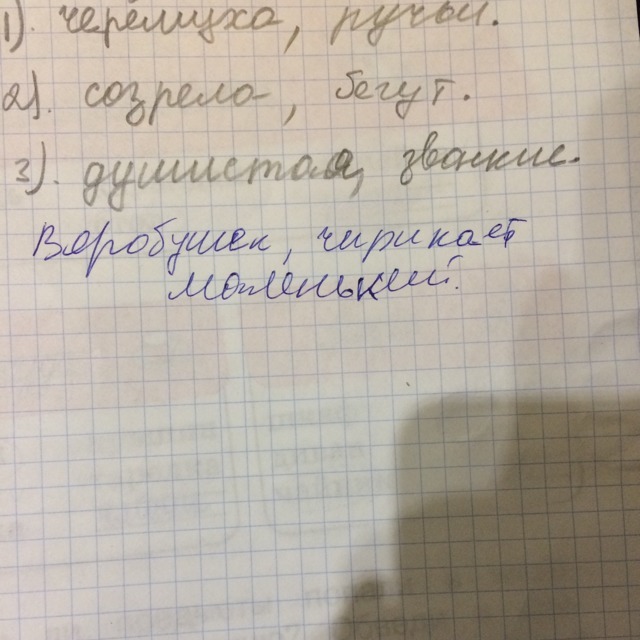 1). черёмуха, ручьи.
2). созрела, бегут.
3). душистая, звонкие.
Воробушек, чирикает
маленький.